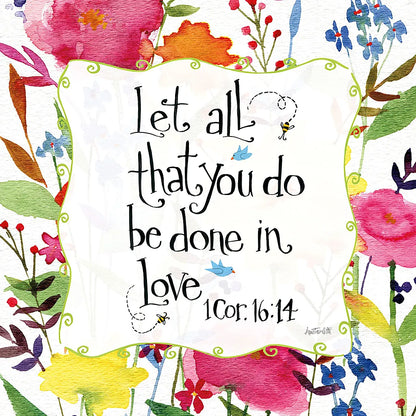 Let all
that you do
be done in
Love
1 Cor. 16:14